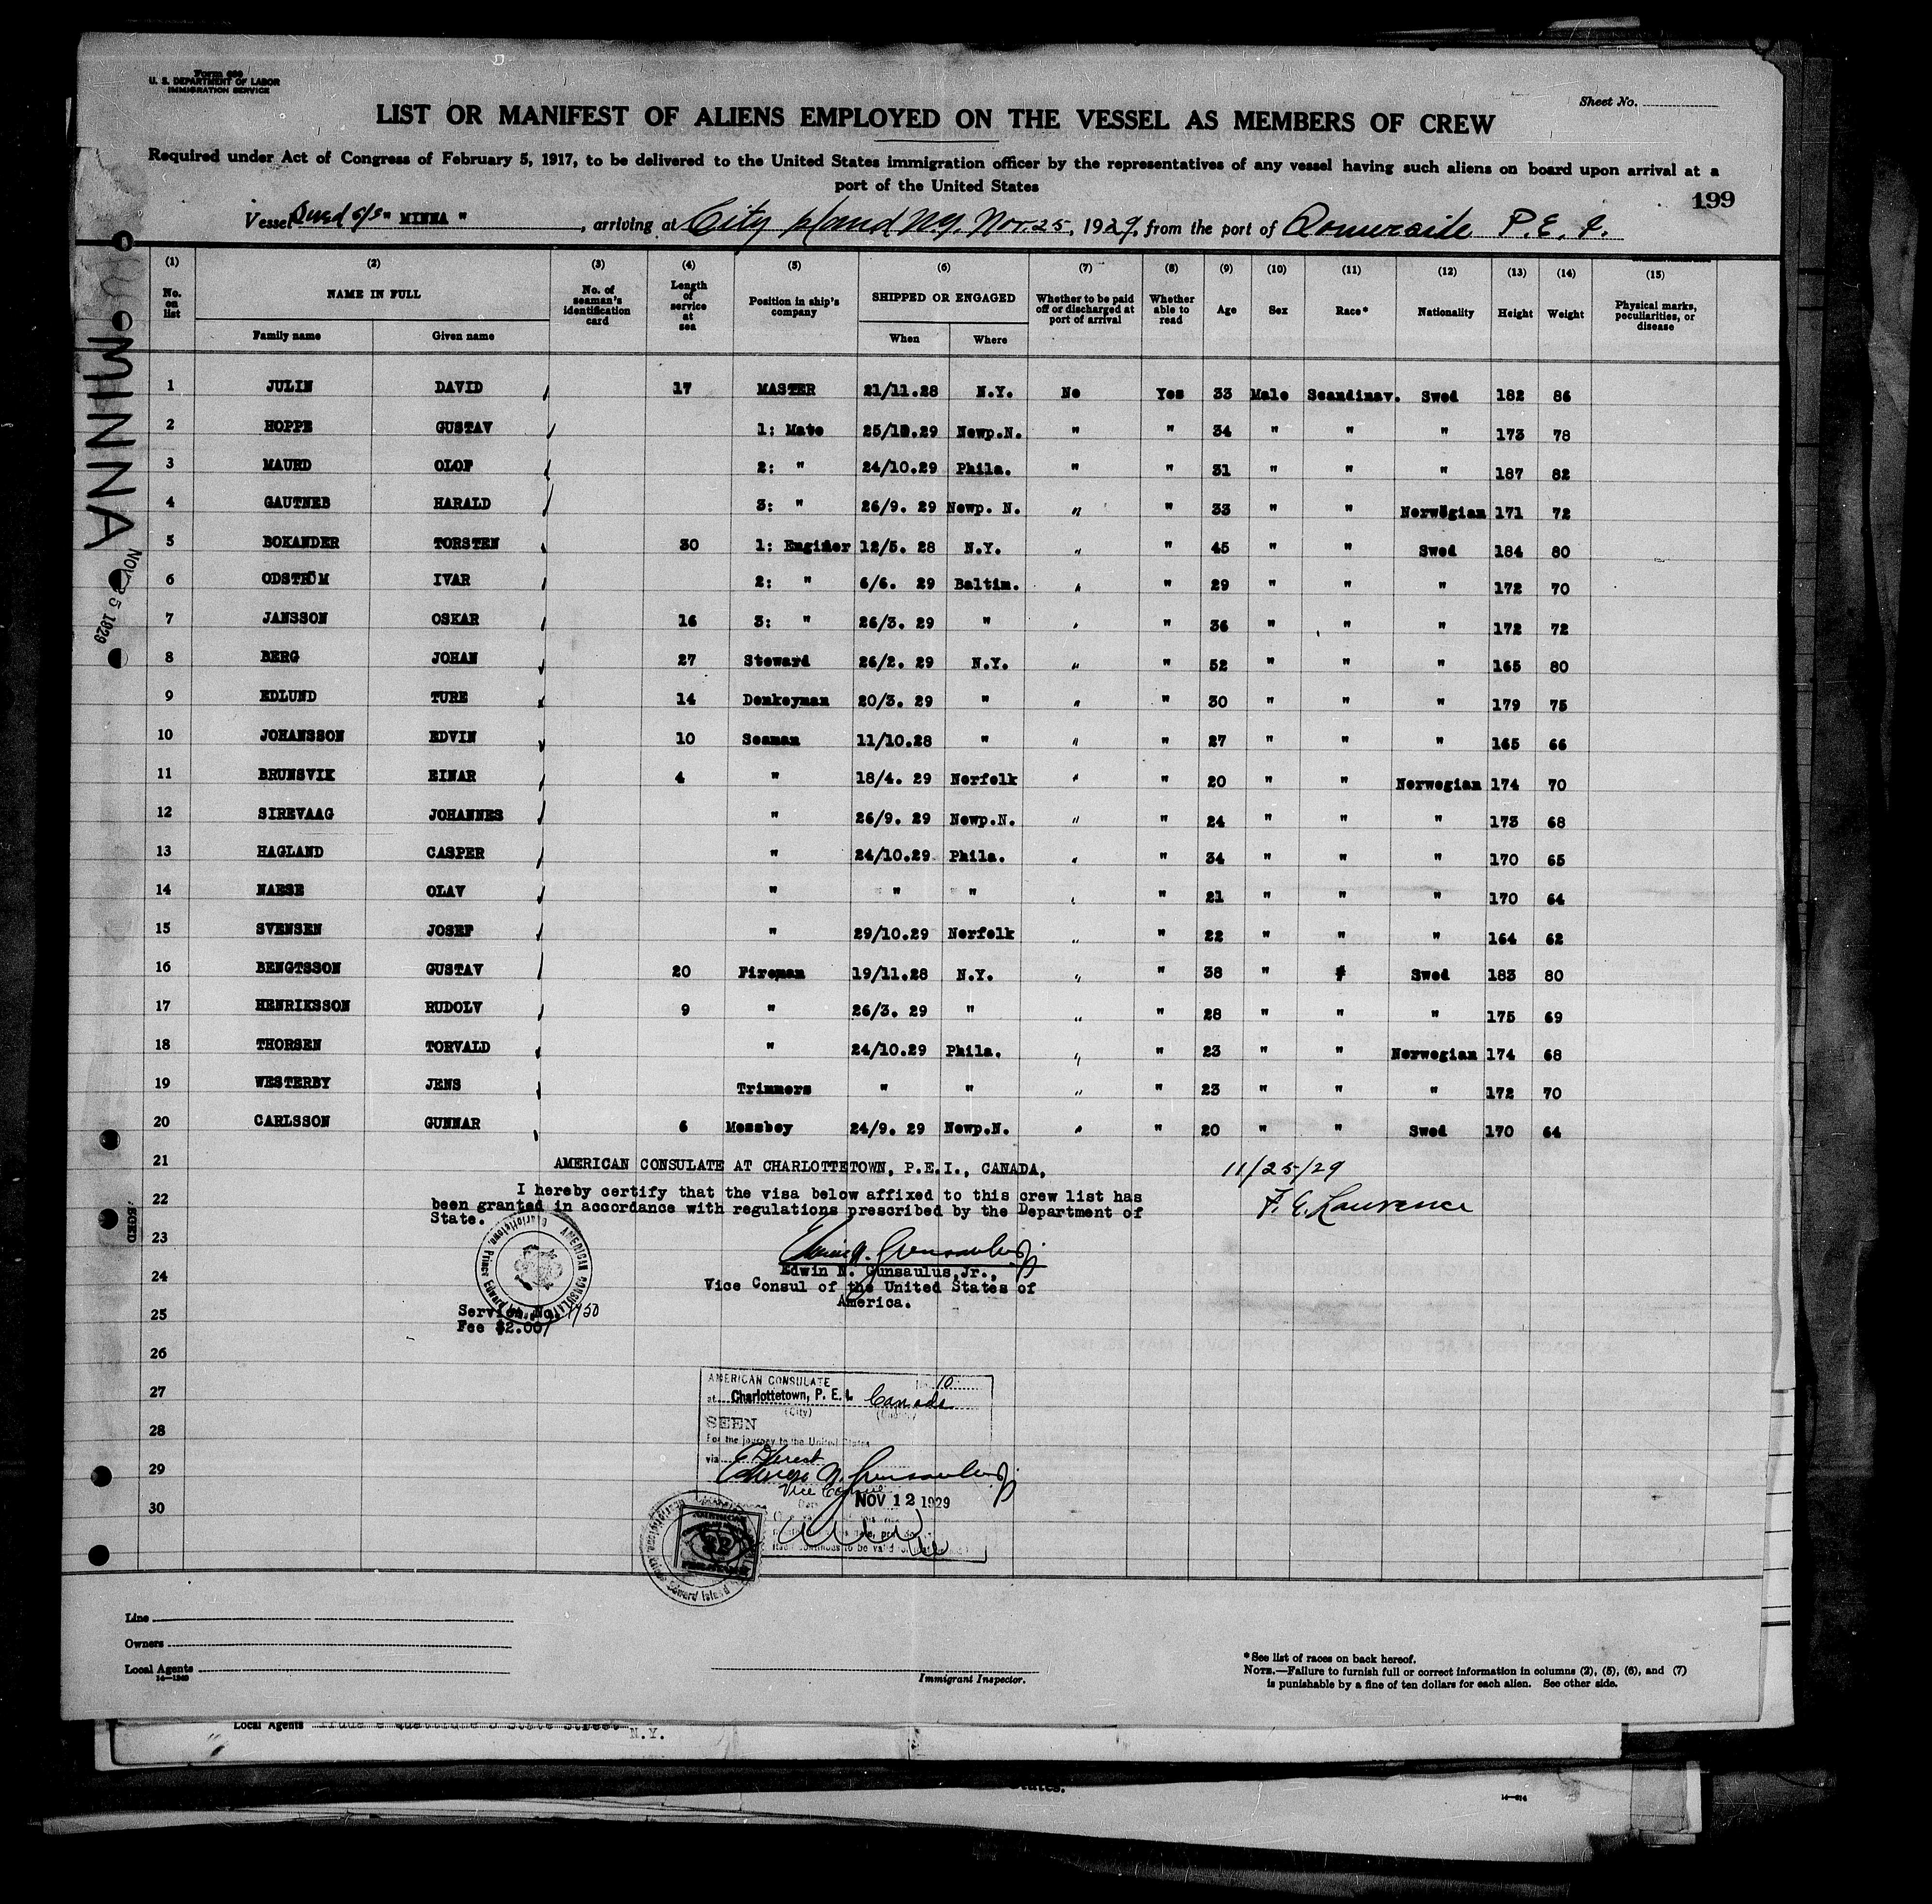 Form 680
U. S. DEPARTMENT OF LABOR
IMMIGRATION SERVICE
Sheet No.
LIST OR MANIFEST OF ALIENS EMPLOYED ON THE VESSEL AS MEMBERS OF CREW
Required under Act of Congress of February 5, 1917, to be delivered to the United States immigration officer by the representatives of any vessel having such aliens on board upon arrival at a
port of the United States
199
Vessel Swed s/s " MINNA ", arriving at City Island N.Y. Nov. 25, 1929, from the port of P.E.I.
(1) (2) (3) (4) (5) (6) (7) (8) (9) (10) (11) (12) (13) (14) (15)
No. on list NAME IN FULL No. of seaman's identification card Length of service at sea Position in ship's company SHIPPED OR ENGAGED Whether to be paid off or discharged at port of arrival Whether able to read Age Sex Race* Nationality Height Weight Physical marks, peculiarities, or disease
Family name Given name When Where
1 JULIN DAVID 17 MASTER 21/11.28 N.Y. No Yes 33 Male Scandinav. Swed 182 86
2 HOPPE GUSTAV 1: Mate 25/10.29 Newp.N. " " 34 " " " 173 78
3 MAURD OLOF 2: " 24/10.29 Phila. " " 31 " " " 187 82
4 GAUTNEB HARALD 3: " 26/9. 29 Newp. N. " " 33 " " Norwegian 171 72
5 BOKANDER TORSTEN 30 1: Enginer 12/5. 28 N.Y. " " 45 " " Swed 184 80
6 ODSTRÖM IVAR 2: " 6/6. 29 Baltim. " " 29 " " " 172 70
7 JANSSON OSKAR 16 3: " 26/3. 29 " " " 36 " " " 172 72
8 BERG JOHAN 27 Steward 26/2. 29 N.Y. " " 52 " " " 165 80
9 EDLUND TURE 14 Donkeyman 20/3. 29 " " " 30 " " " 179 75
10 JOHANSSON EDVIN 10 Seaman 11/10.28 " " " 27 " " " 165 66
11 BRUNSVIK EINAR 4 " 18/4. 29 Norfolk " " 20 " " Norwegian 174 70
12 SIREVAAG JOHANNES " 26/9. 29 Newp.N. " " 24 " " " 173 68
13 HAGLAND CASPER " 24/10.29 Phila. " " 34 " " " 170 65
14 NAESE OLAV " " " " " 21 " " " 170 64
15 SVENSEN JOSEF " 29/10.29 Norfolk " " 22 " " " 164 62
16 BENGTSSON GUSTAV 20 Fireman 19/11.28 N.Y. " " 38 " " Swed 183 80
17 HENRIKSSON RUDOLV 9 " 26/3. 29 " " " 28 " " " 175 69
18 THORSEN TORVALD " 24/10.29 Phila. " " 23 " " Norwegian 174 68
19 WESTERBY JENS Trimmers " " " " 23 " " " 172 70
20 CARLSSON GUNNAR 6 Messboy 24/9. 29 Newp.N. " " 20 " " Swed 170 64
21 AMERICAN CONSULATE AT CHARLOTTETOWN, P.E.I., CANADA, 11/25/29
22 I hereby certify that the visa below affixed to this crew list has
been granted in accordance with regulations prescribed by the Department of
State.
F. E. Lawrence
23
Edwin N. Gunsaulus, Jr.
24 Edwin N. Gunsaulus, Jr.,
Vice Consul of the United States of
America.
AMERICAN CONSULATE Charlottetown, Prince Edward Island
25 Service No.
Fee $2.00
26
27 AMERICAN CONSULATE No. 10
at Charlottetown, P. E. I. Canada
(City) (Country)
28 SEEN
For the journey to the United States
29 via Direct
Edwin N. Gunsaulus Jr
Vice Consul
30 Date NOV 12 1929
MINNA
NOV 25 1929
Line
Owners
Local Agents
14—1240
Immigrant Inspector.
*See list of races on back hereof.
NOTE.—Failure to furnish full or correct information in columns (2), (5), (6), and (7)
is punishable by a fine of ten dollars for each alien. See other side.
Local Agents
N.Y.
States.